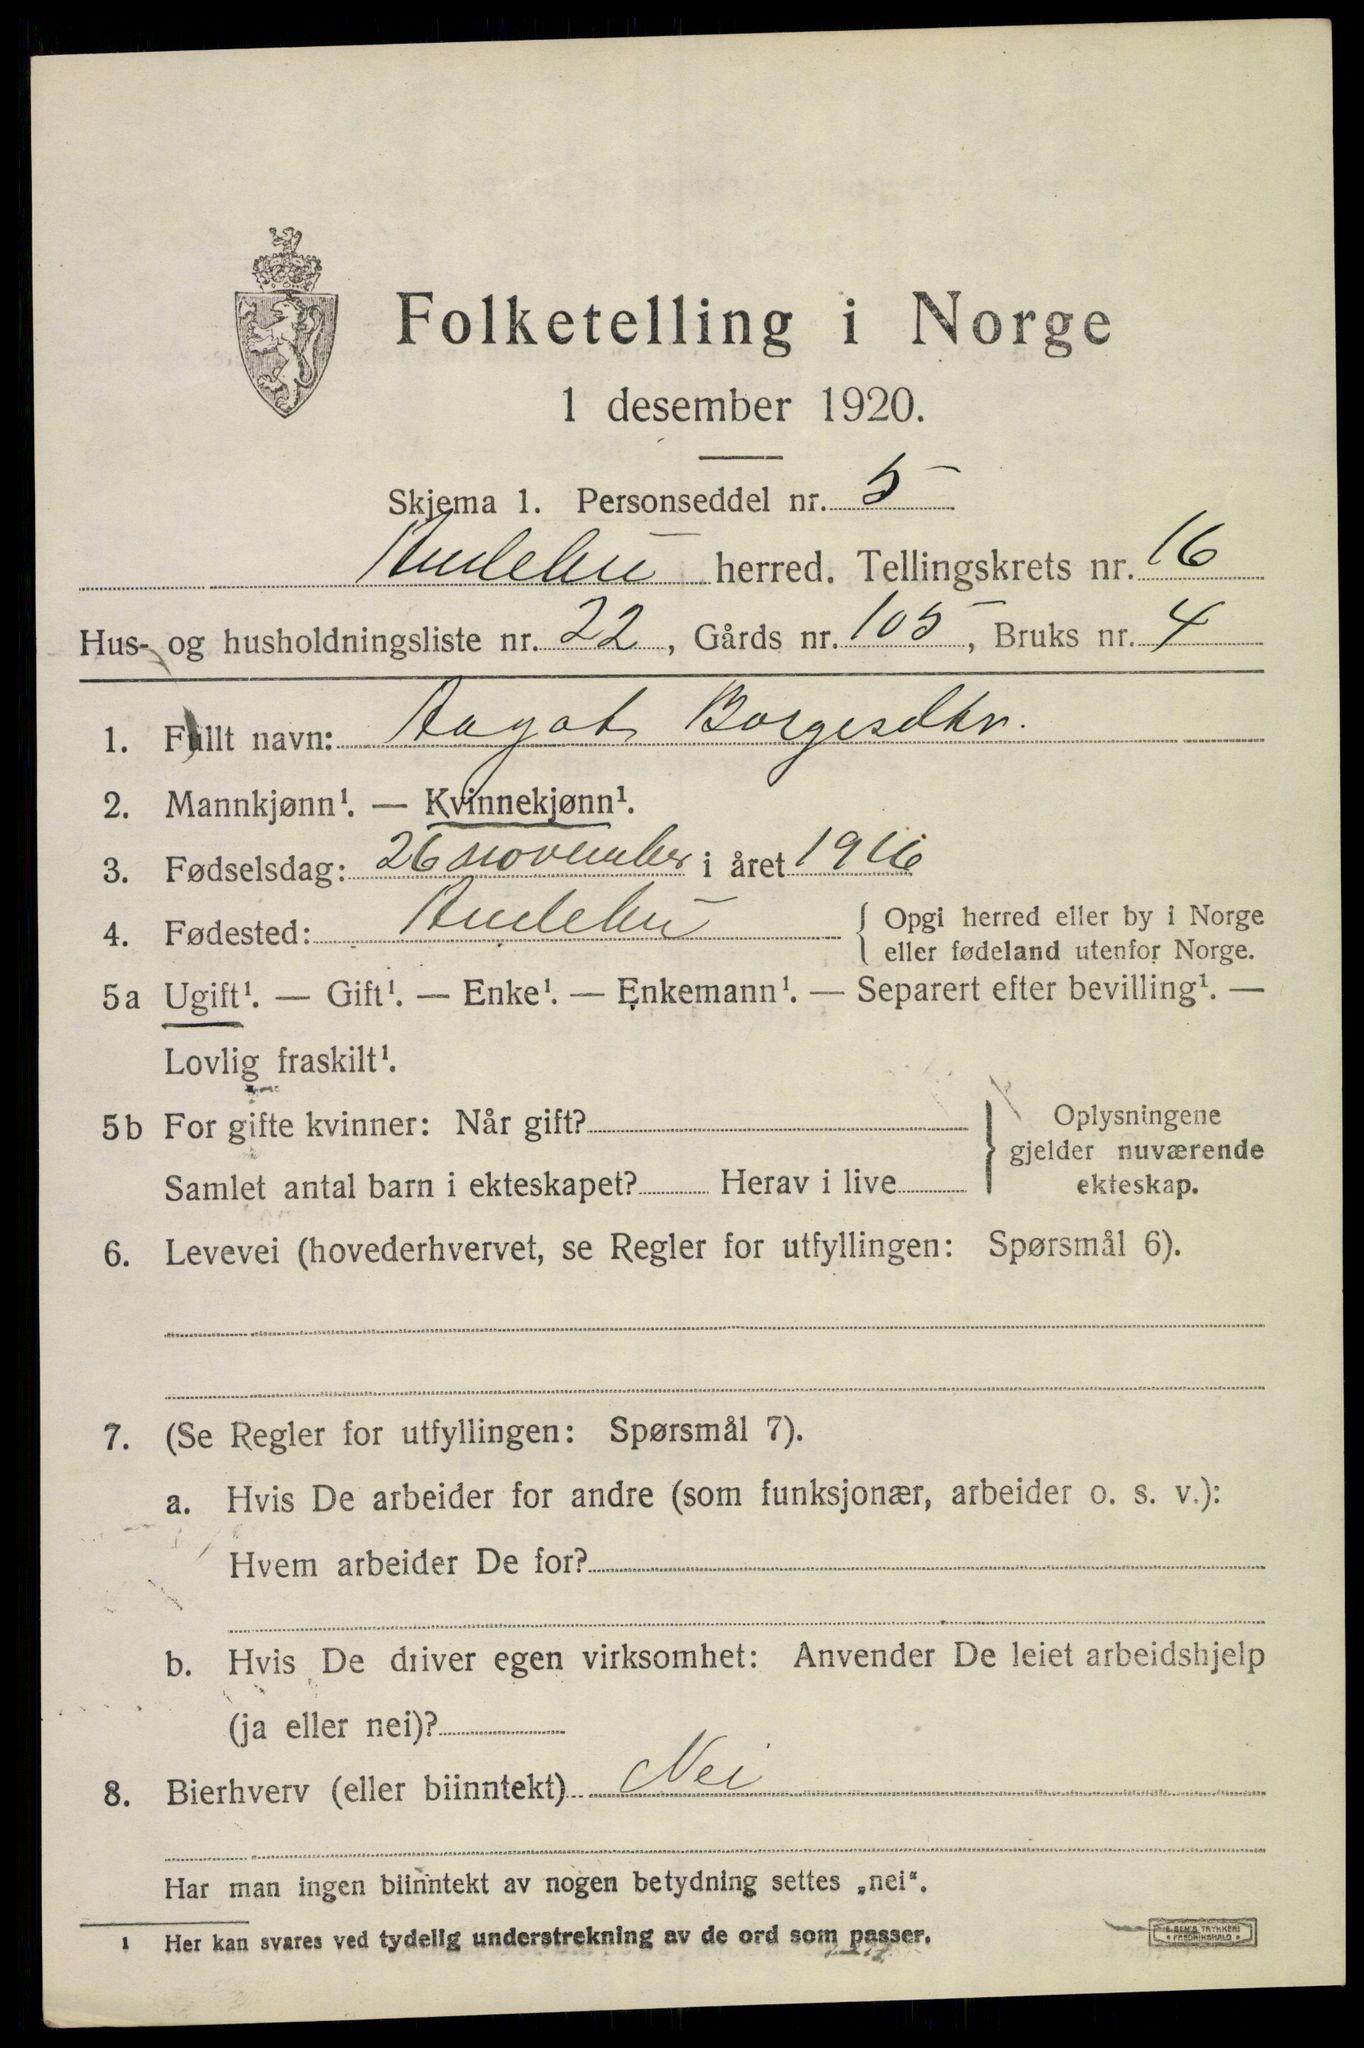 Folketelling i Norge
1 desember 1920.
Skjema 1. Personseddel nr. 5
Andebu herred. Tellingskrets nr. 16
Hus- og husholdningsliste nr. 22, Gårds nr. 105, Bruks nr. 4
1. Fullt navn: Aagot Borgesdtr.
2. Mannkjønn¹. — Kvinnekjønn¹.
3. Fødselsdag: 26 november i året 1916
4. Fødested: Andebu { Opgi herred eller by i Norge
eller fødeland utenfor Norge.
5a Ugift¹. — Gift¹. — Enke¹. — Enkemann¹. — Separert efter bevilling¹. —
Lovlig fraskilt¹.
5b For gifte kvinner: Når gift?
Samlet antal barn i ekteskapet? Herav i live
} Oplysningene
gjelder nuværende
ekteskap.
6. Levevei (hovederhvervet, se Regler for utfyllingen: Spørsmål 6).
7. (Se Regler for utfyllingen: Spørsmål 7).
a. Hvis De arbeider for andre (som funksjonær, arbeider o. s. v.):
Hvem arbeider De for?
b. Hvis De driver egen virksomhet: Anvender De leiet arbeidshjelp
(ja eller nei)?
8. Bierhverv (eller biinntekt) Nei
Har man ingen biinntekt av nogen betydning settes „nei“.
¹ Her kan svares ved tydelig understrekning av de ord som passer.